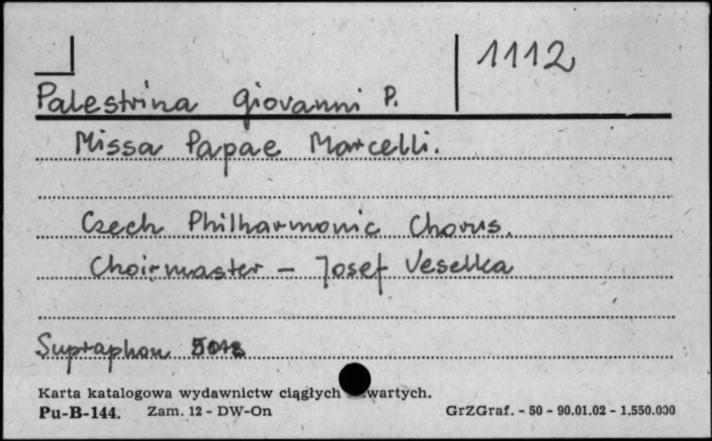 1112
Palestrina Giovanni P.
Missa Papae Marcelli.
Czech Philharmonic Chorus.
Choirmaster – Josef Veselka
Supraphon
Karta katalogowa wydawnictw ciągłych wartych.
Pu-B-144. Zam. 12 - DW-On GrZGraf. - 50 - 90.01.02 - 1.550.000